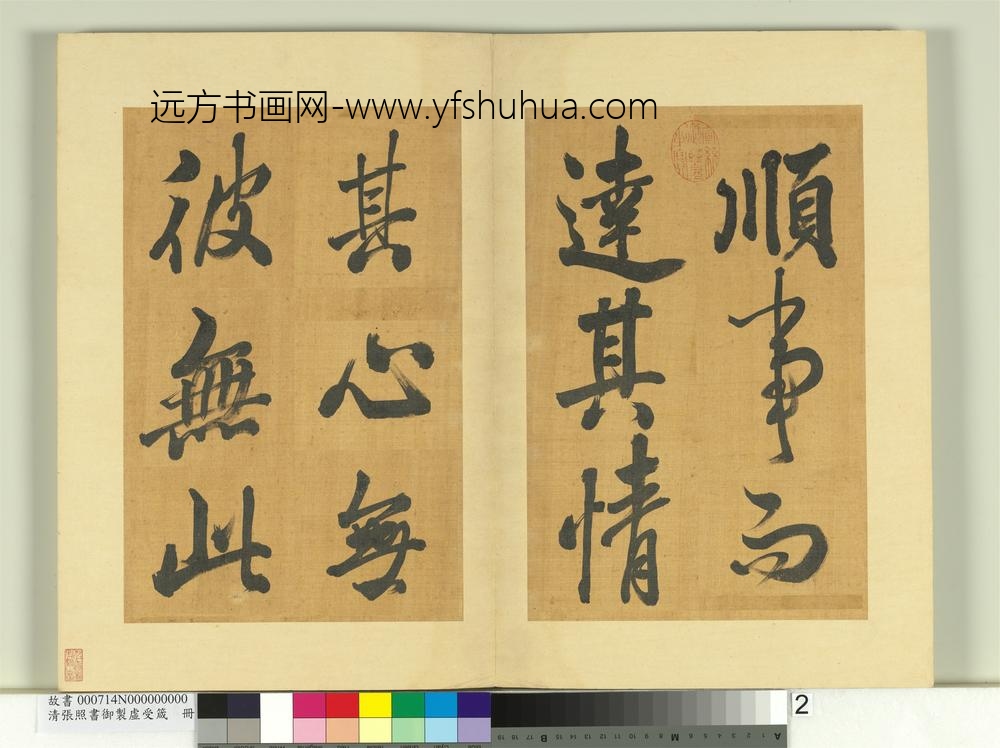 远方书画网-www.yfshuhua.com
順事而
達其情
其心無
彼無此
故書 000714N000000000
清張照書御製虛受箴 冊
2